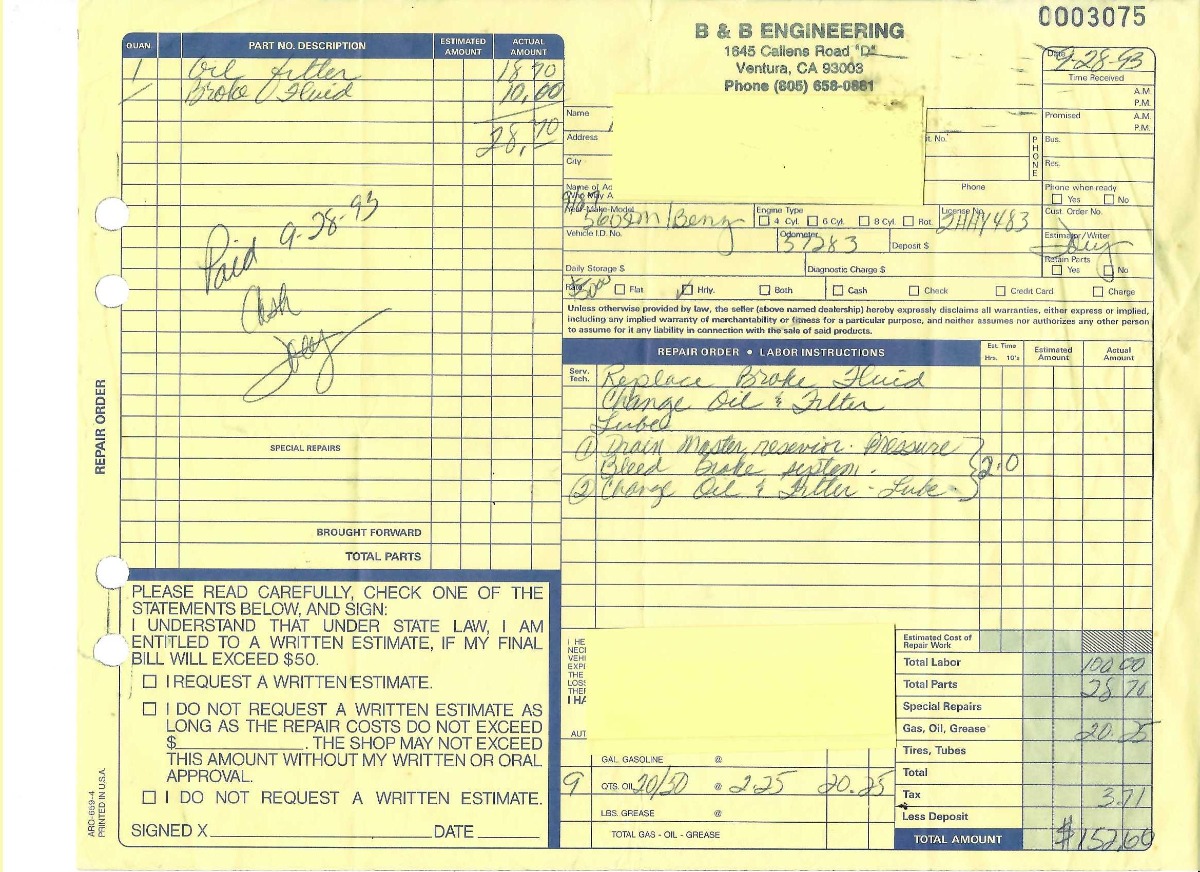 0003075
B & B ENGINEERING
1645 Callens Road "D"
Ventura, CA 93003
Phone (805) 658-0881
QUAN. PART NO. DESCRIPTION ESTIMATED AMOUNT ACTUAL AMOUNT
1 Oil filter 18 70
Brake Fluid 10,00
28,70
Paid 9-28-93
Cash
Joey
REPAIR ORDER
SPECIAL REPAIRS
BROUGHT FORWARD
TOTAL PARTS
Date 9-28-93
Time Received
A.M.
P.M.
Promised A.M.
P.M.
Name
Address
City
t. No.
PHONE
Bus.
Res.
Name of Ad
Who May A
Phone
Phone when ready
Yes No
Year-Make-Model 560SEM/Benz
Engine Type
4 Cyl. 6 Cyl. 8 Cyl. Rot.
License No. 2HHY483
Cust. Order No.
Vehicle I.D. No.
Odometer 57283
Deposit $
Estimator/Writer Joey
Retain Parts
Yes No
Daily Storage $
Diagnostic Charge $
Rate 50 00 Flat Hrly. Both Cash Check Credit Card Charge
Unless otherwise provided by law, the seller (above named dealership) hereby expressly disclaims all warranties, either express or implied,
including any implied warranty of merchantability or fitness for a particular purpose, and neither assumes nor authorizes any other person
to assume for it any liability in connection with the sale of said products.
REPAIR ORDER • LABOR INSTRUCTIONS Est. Time Hrs. 10's Estimated Amount Actual Amount
Serv. Tech.
Replace Brake Fluid
Change Oil & Filter
Lube
① Drain Master reservior. Pressure
Bleed Brake system. 2.0
② Change Oil & Filter - Lube -
PLEASE READ CAREFULLY, CHECK ONE OF THE
STATEMENTS BELOW, AND SIGN:
I UNDERSTAND THAT UNDER STATE LAW, I AM
ENTITLED TO A WRITTEN ESTIMATE, IF MY FINAL
BILL WILL EXCEED $50.
I REQUEST A WRITTEN ESTIMATE.
I DO NOT REQUEST A WRITTEN ESTIMATE AS
LONG AS THE REPAIR COSTS DO NOT EXCEED
$ . THE SHOP MAY NOT EXCEED
THIS AMOUNT WITHOUT MY WRITTEN OR ORAL
APPROVAL.
I DO NOT REQUEST A WRITTEN ESTIMATE.
SIGNED X DATE
ARO-659-4
PRINTED IN U.S.A.
I HE
NECE
VEHI
EXPI
THE
LOSS
THEF
I HA
AUT
GAL. GASOLINE @
9 QTS. OIL 20/50 @ 2.25 20.25
LBS. GREASE @
TOTAL GAS - OIL - GREASE
Estimated Cost of
Repair Work
Total Labor 100 00
Total Parts 28 70
Special Repairs
Gas, Oil, Grease 20.25
Tires, Tubes
Total
Tax 3.71
Less Deposit
TOTAL AMOUNT $152,60